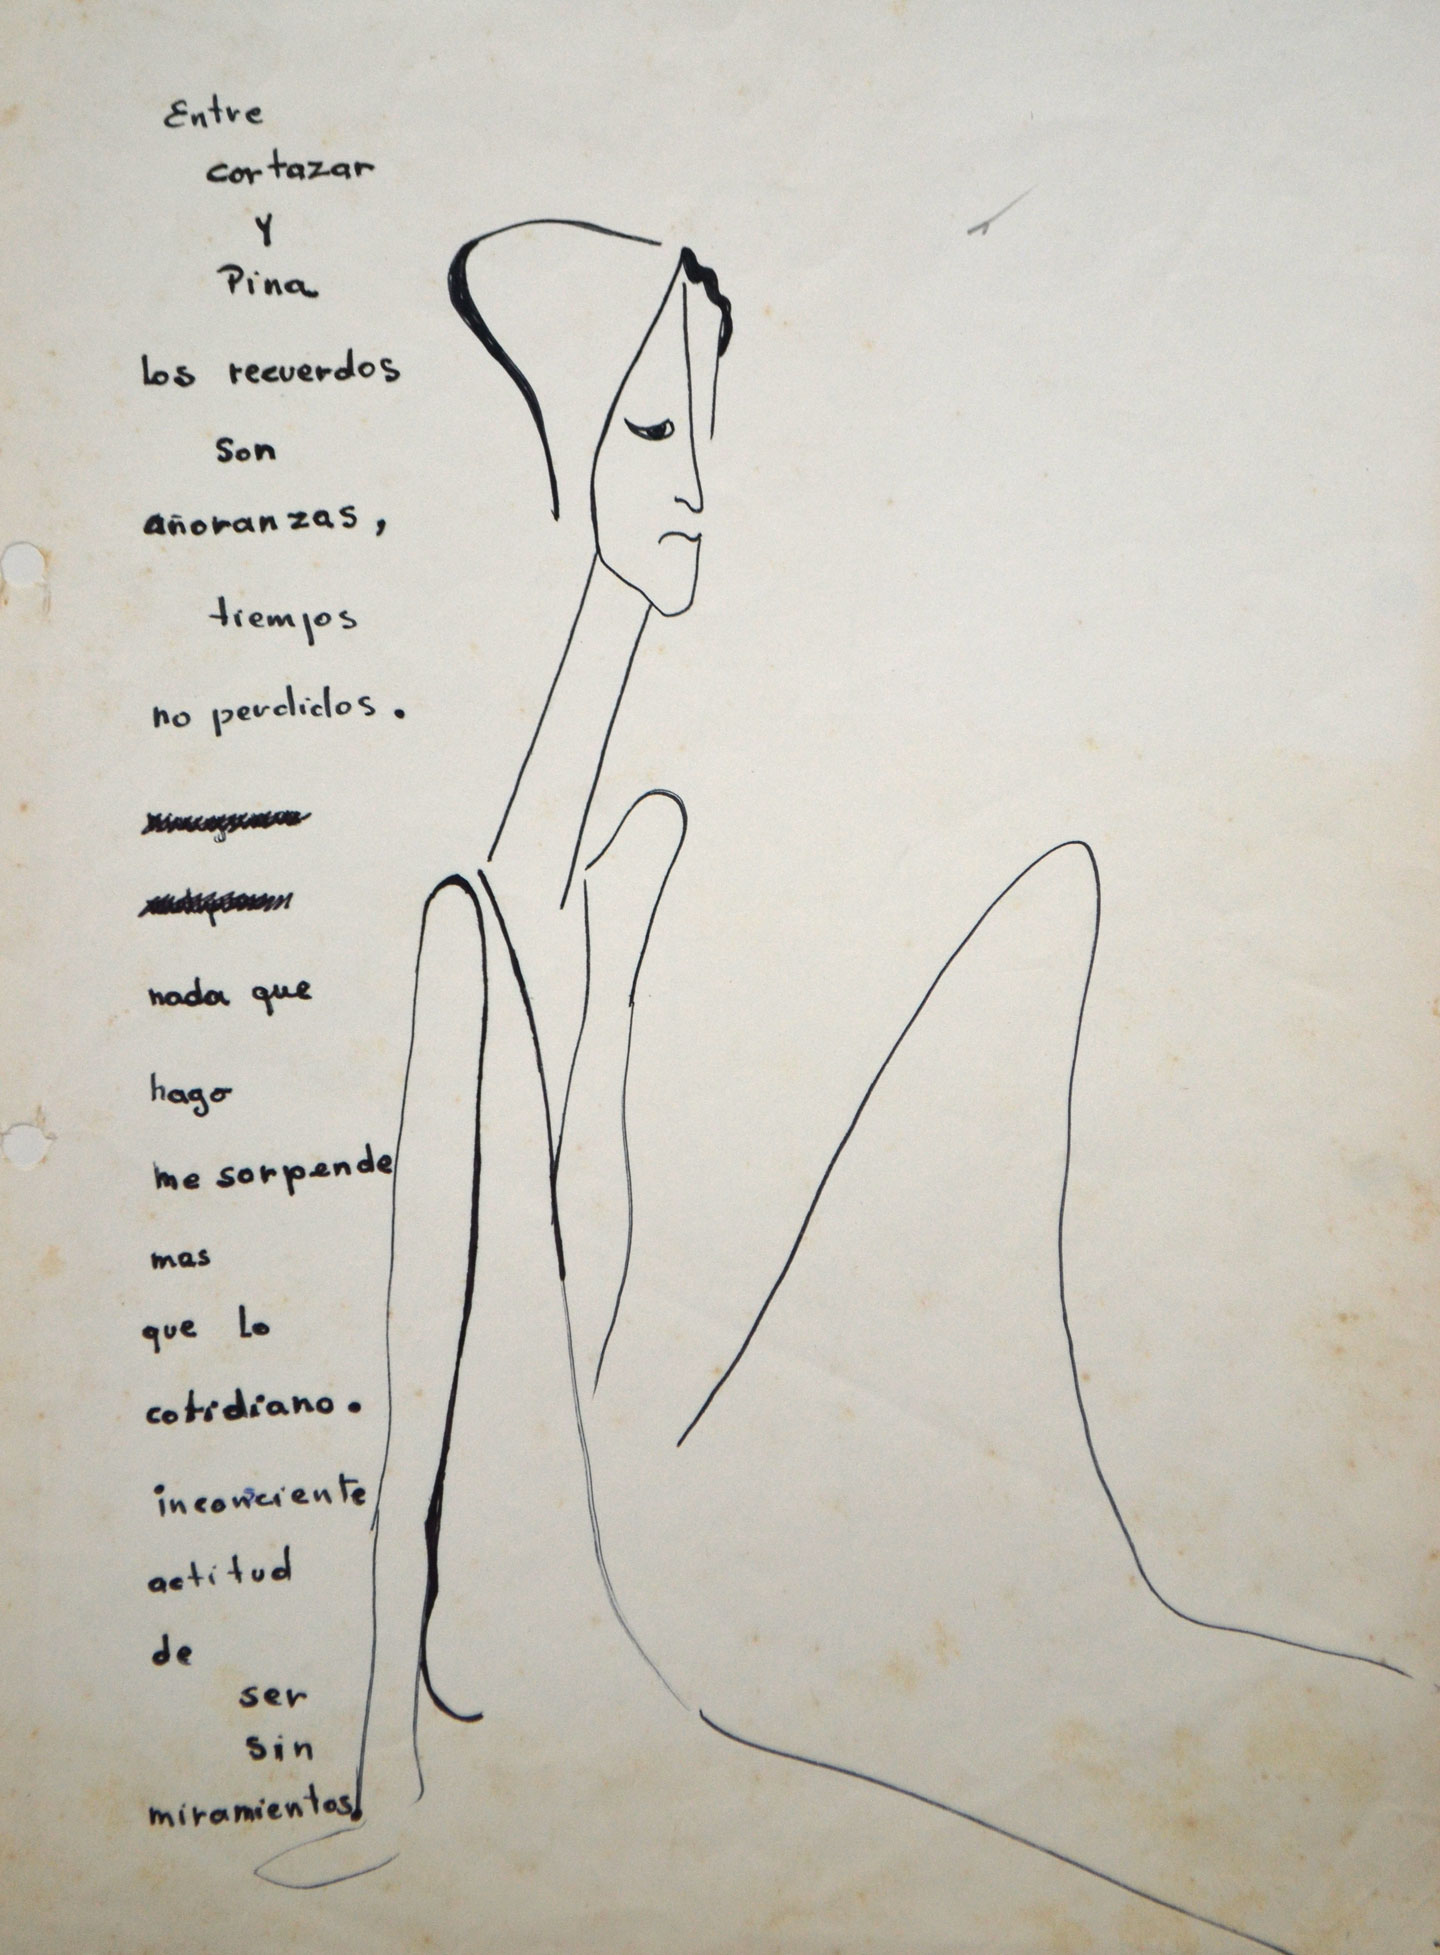 Entre
cortazar
y
Pina
los recuerdos
son
añoranzas,
tiempos
no perdidos.
nada que
hago
me sorpende
mas
que lo
cotidiano.
inconciente
actitud
de
ser
sin
miramientos.